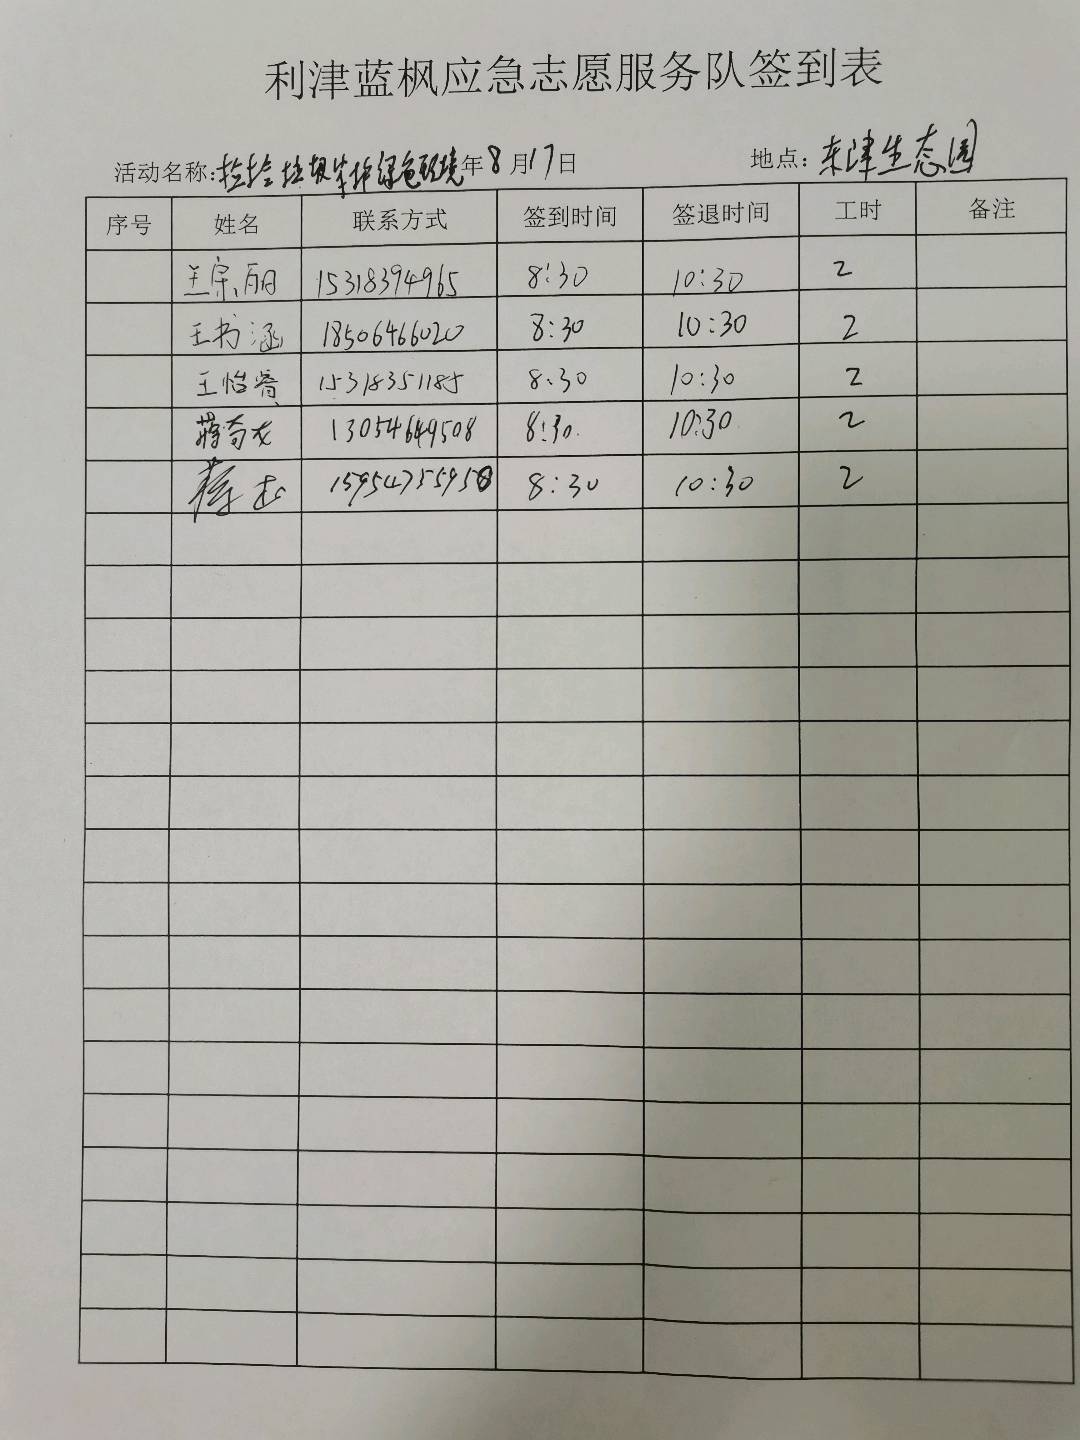 利津蓝枫应急志愿服务队签到表
活动名称:捡捡垃圾 绿色环境年8月17日 地点:东津生态园
序号 姓名 联系方式 签到时间 签退时间 工时 备注
兰宗丽 15318394965 8:30 10:30 2
王书涵 18506466020 8:30 10:30 2
王怡睿 15318351185 8:30 10:30 2
蒋奇龙 13054649508 8:30 10:30 2
15954735958 8:30 10:30 2